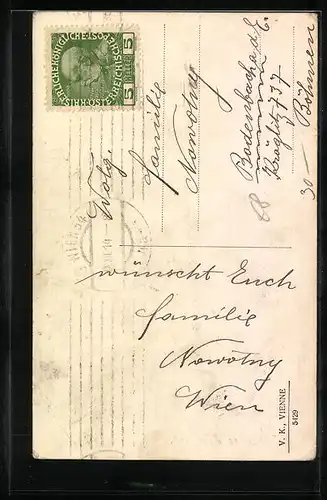 KAISERLICHE KÖNIGLICHE ÖSTERREICHISCHE POST
5 HELLER 5
WIEN 54
Wolg.
Familie
Nowotny
Bodenbach a.d.E.
Kröglitz 737
30 — Böhmen
68
wünscht Euch
Familie
Nowotny
Wien
V. K., VIENNE
5429